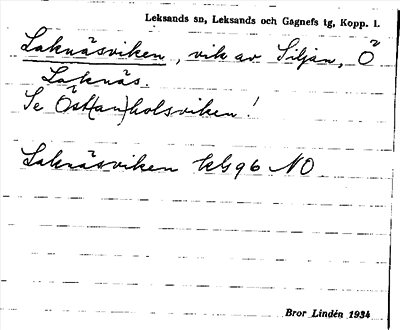 Leksands sn, Leksands och Gagnefs tg, Kopp. l.
Laknäsviken, vik av Siljan, Ö
Laknäs.
Se Öst(an)holsviken!
Laknäsviken kbl 96 NO
Bror Lindén 1934